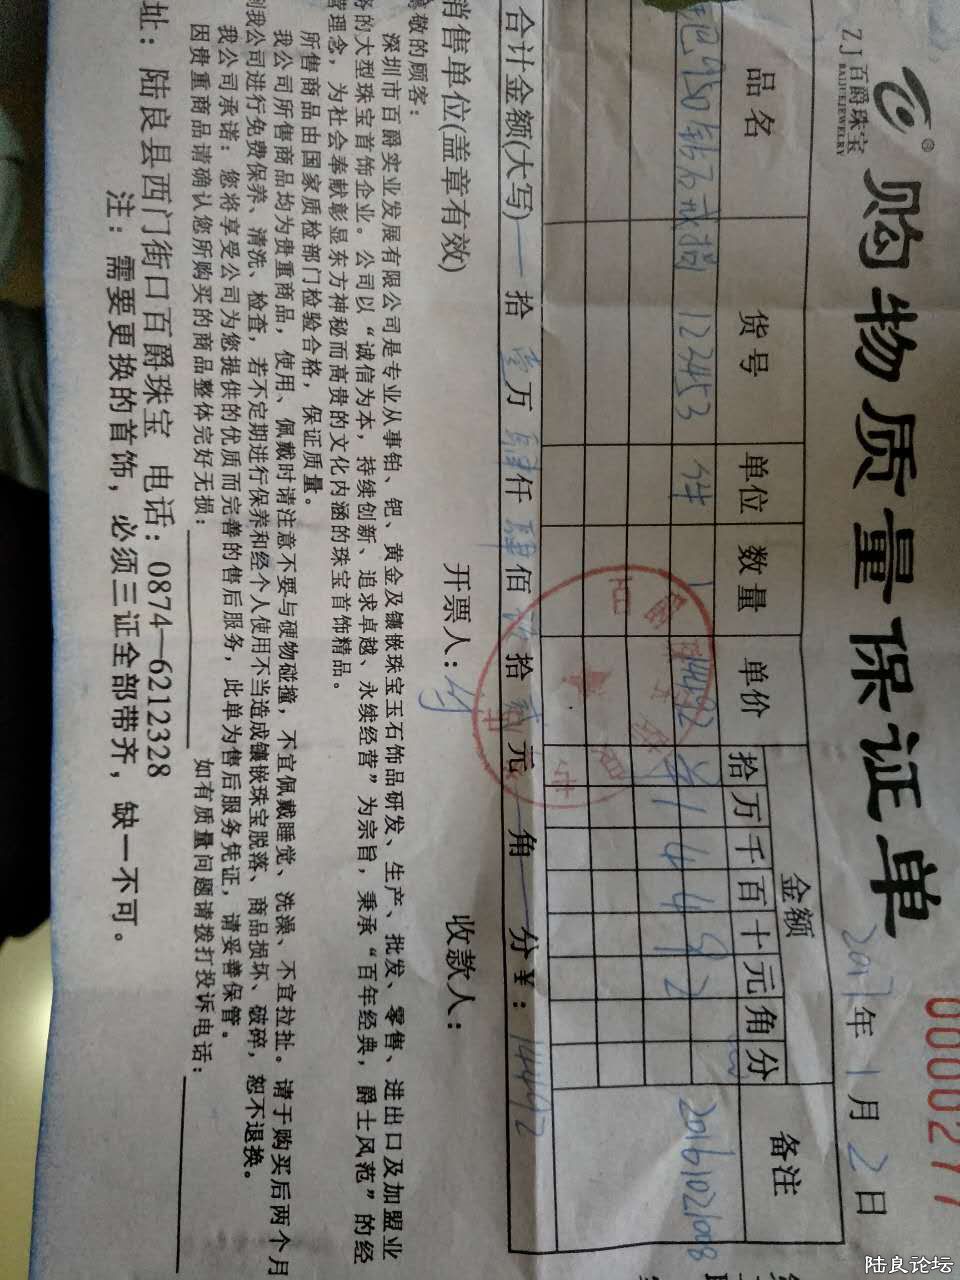 ZJ百爵珠宝
BAIJUEJEWELRY
®
购物质量保证单
0000277
2017年1月2日
品名 货号 单位 数量 单价 金额 备注
拾万千百十元角分
钯950钻石戒指 122453 件 1 14492 ¥14492 20161021008
合计金额(大写) 拾壹万肆仟肆佰玖拾贰元 角 分¥:14492
销售单位(盖章有效) 开票人: 收款人:
尊敬的顾客:
深圳市百爵实业发展有限公司是专业从事铂、钯、黄金及镶嵌珠宝玉石饰品研发、生产、批发、零售、进出口及加盟业
务的大型珠宝首饰企业。公司以“诚信为本,持续创新、追求卓越、永续经营”为宗旨,秉承“百年经典,爵士风范”的经
营理念,为社会奉献彰显东方神秘而高贵的文化内涵的珠宝首饰精品。
所售商品由国家质检部门检验合格,保证质量。
我公司所售商品均为贵重商品,使用、佩戴时请注意不要与硬物碰撞,不宜佩戴睡觉、洗澡、不宜拉扯。请于购买后两个月
到我公司进行免费保养、清洗、检查,若不定期进行保养和经个人使用不当造成镶嵌珠宝脱落、商品损坏、破碎,恕不退换。
我公司承诺:您将享受公司为您提供的优质而完善的售后服务,此单为售后服务凭证,请妥善保管。
因贵重商品请确认您所购买的商品整体完好无损: 如有质量问题请拨打投诉电话:
址:陆良县西门街口百爵珠宝 电话:0874—6212328
注:需要更换的首饰,必须三证全部带齐,缺一不可。
陆良论坛